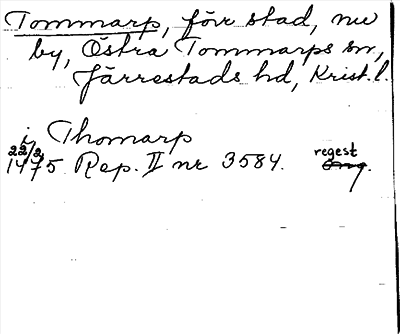 Tommarp, förr stad, nu
by, Östra Tommarps sn,
Järrestads hd, Krist. l.
i Thomarp
22/2
1475 Rep. II nr 3584. regest
Orig.